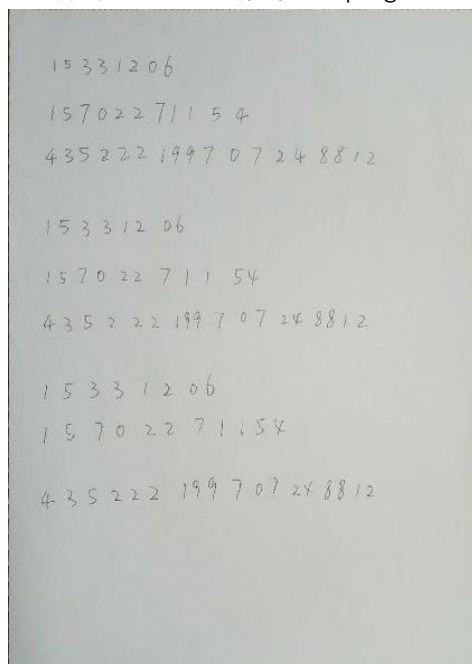 15331206
15702271154
435222199707248812
15331206
15702271154
435222199707248812
15331206
15702271154
435222199707248812